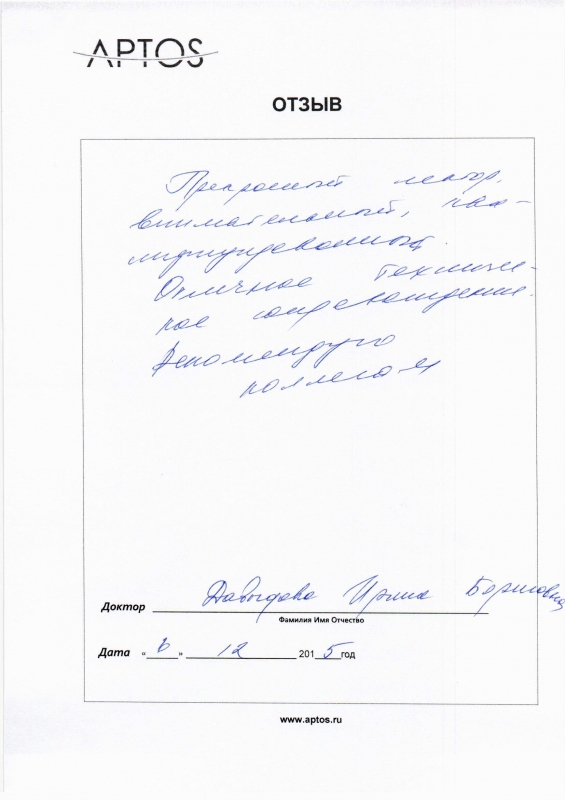 APTOS
ОТЗЫВ
Прекрасный лектор,
внимательный, ква-
лифицированный.
Отличное техниче-
кое сопровождение.
Рекомендую
коллегам
Доктор Давыдова Ирина Борисовна
Фамилия Имя Отчество
Дата « 6 » 12 2015 год
www.aptos.ru